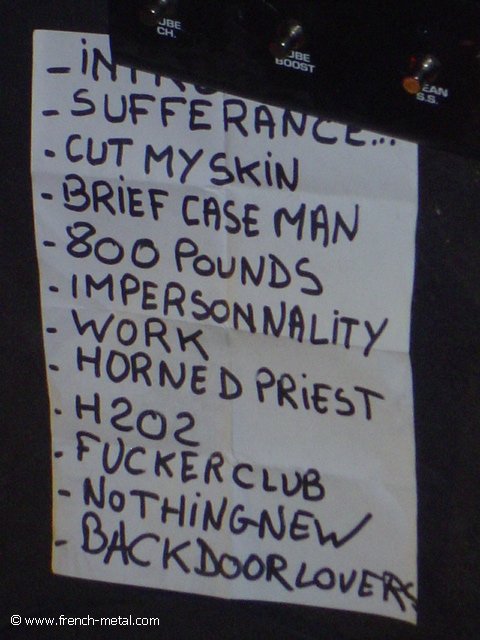 UBE
CH.
UBE
BOOST
EAN
S.S.
- SUFFERANCE...
- CUT MY SKIN
- BRIEF CASE MAN
- 800 POUNDS
- IMPERSONNALITY
- WORK
- HORNED PRIEST
- H2O2
- FUCKER CLUB
- NOTHING NEW
- BACKDOOR LOVERS
© www.french-metal.com